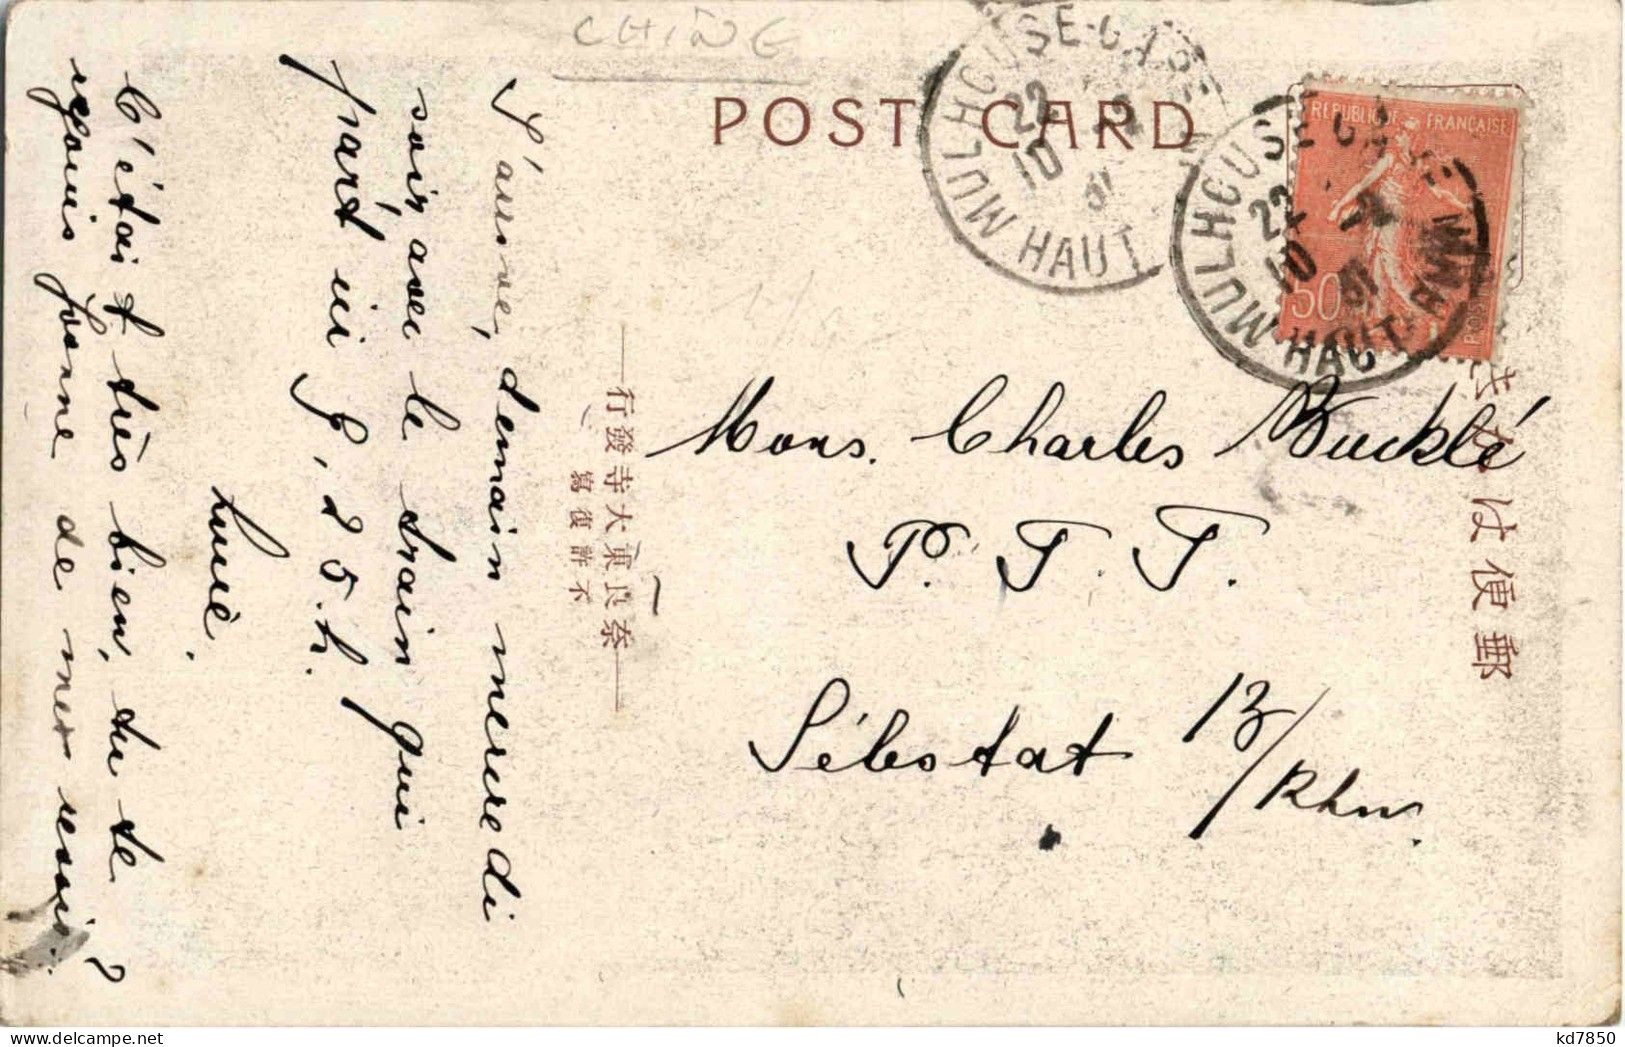 CHINE
POST CARD
MULHOUSE-GARE
22
10
31
HAUT
MULHOUSE GARE
22
10
31
HAUT-RHIN
REPUBLIQUE FRANÇAISE
50
郵便はかき
奈良東大寺發行
不許復寫
Mons. Charles
P. T. T.
Sélestat B/Rhin.
J'arrive, demain mercredi
soir, avec le train qui
part ici 8, 25 h.
C'était très bien, tu te
réjouis
de me
kd7850